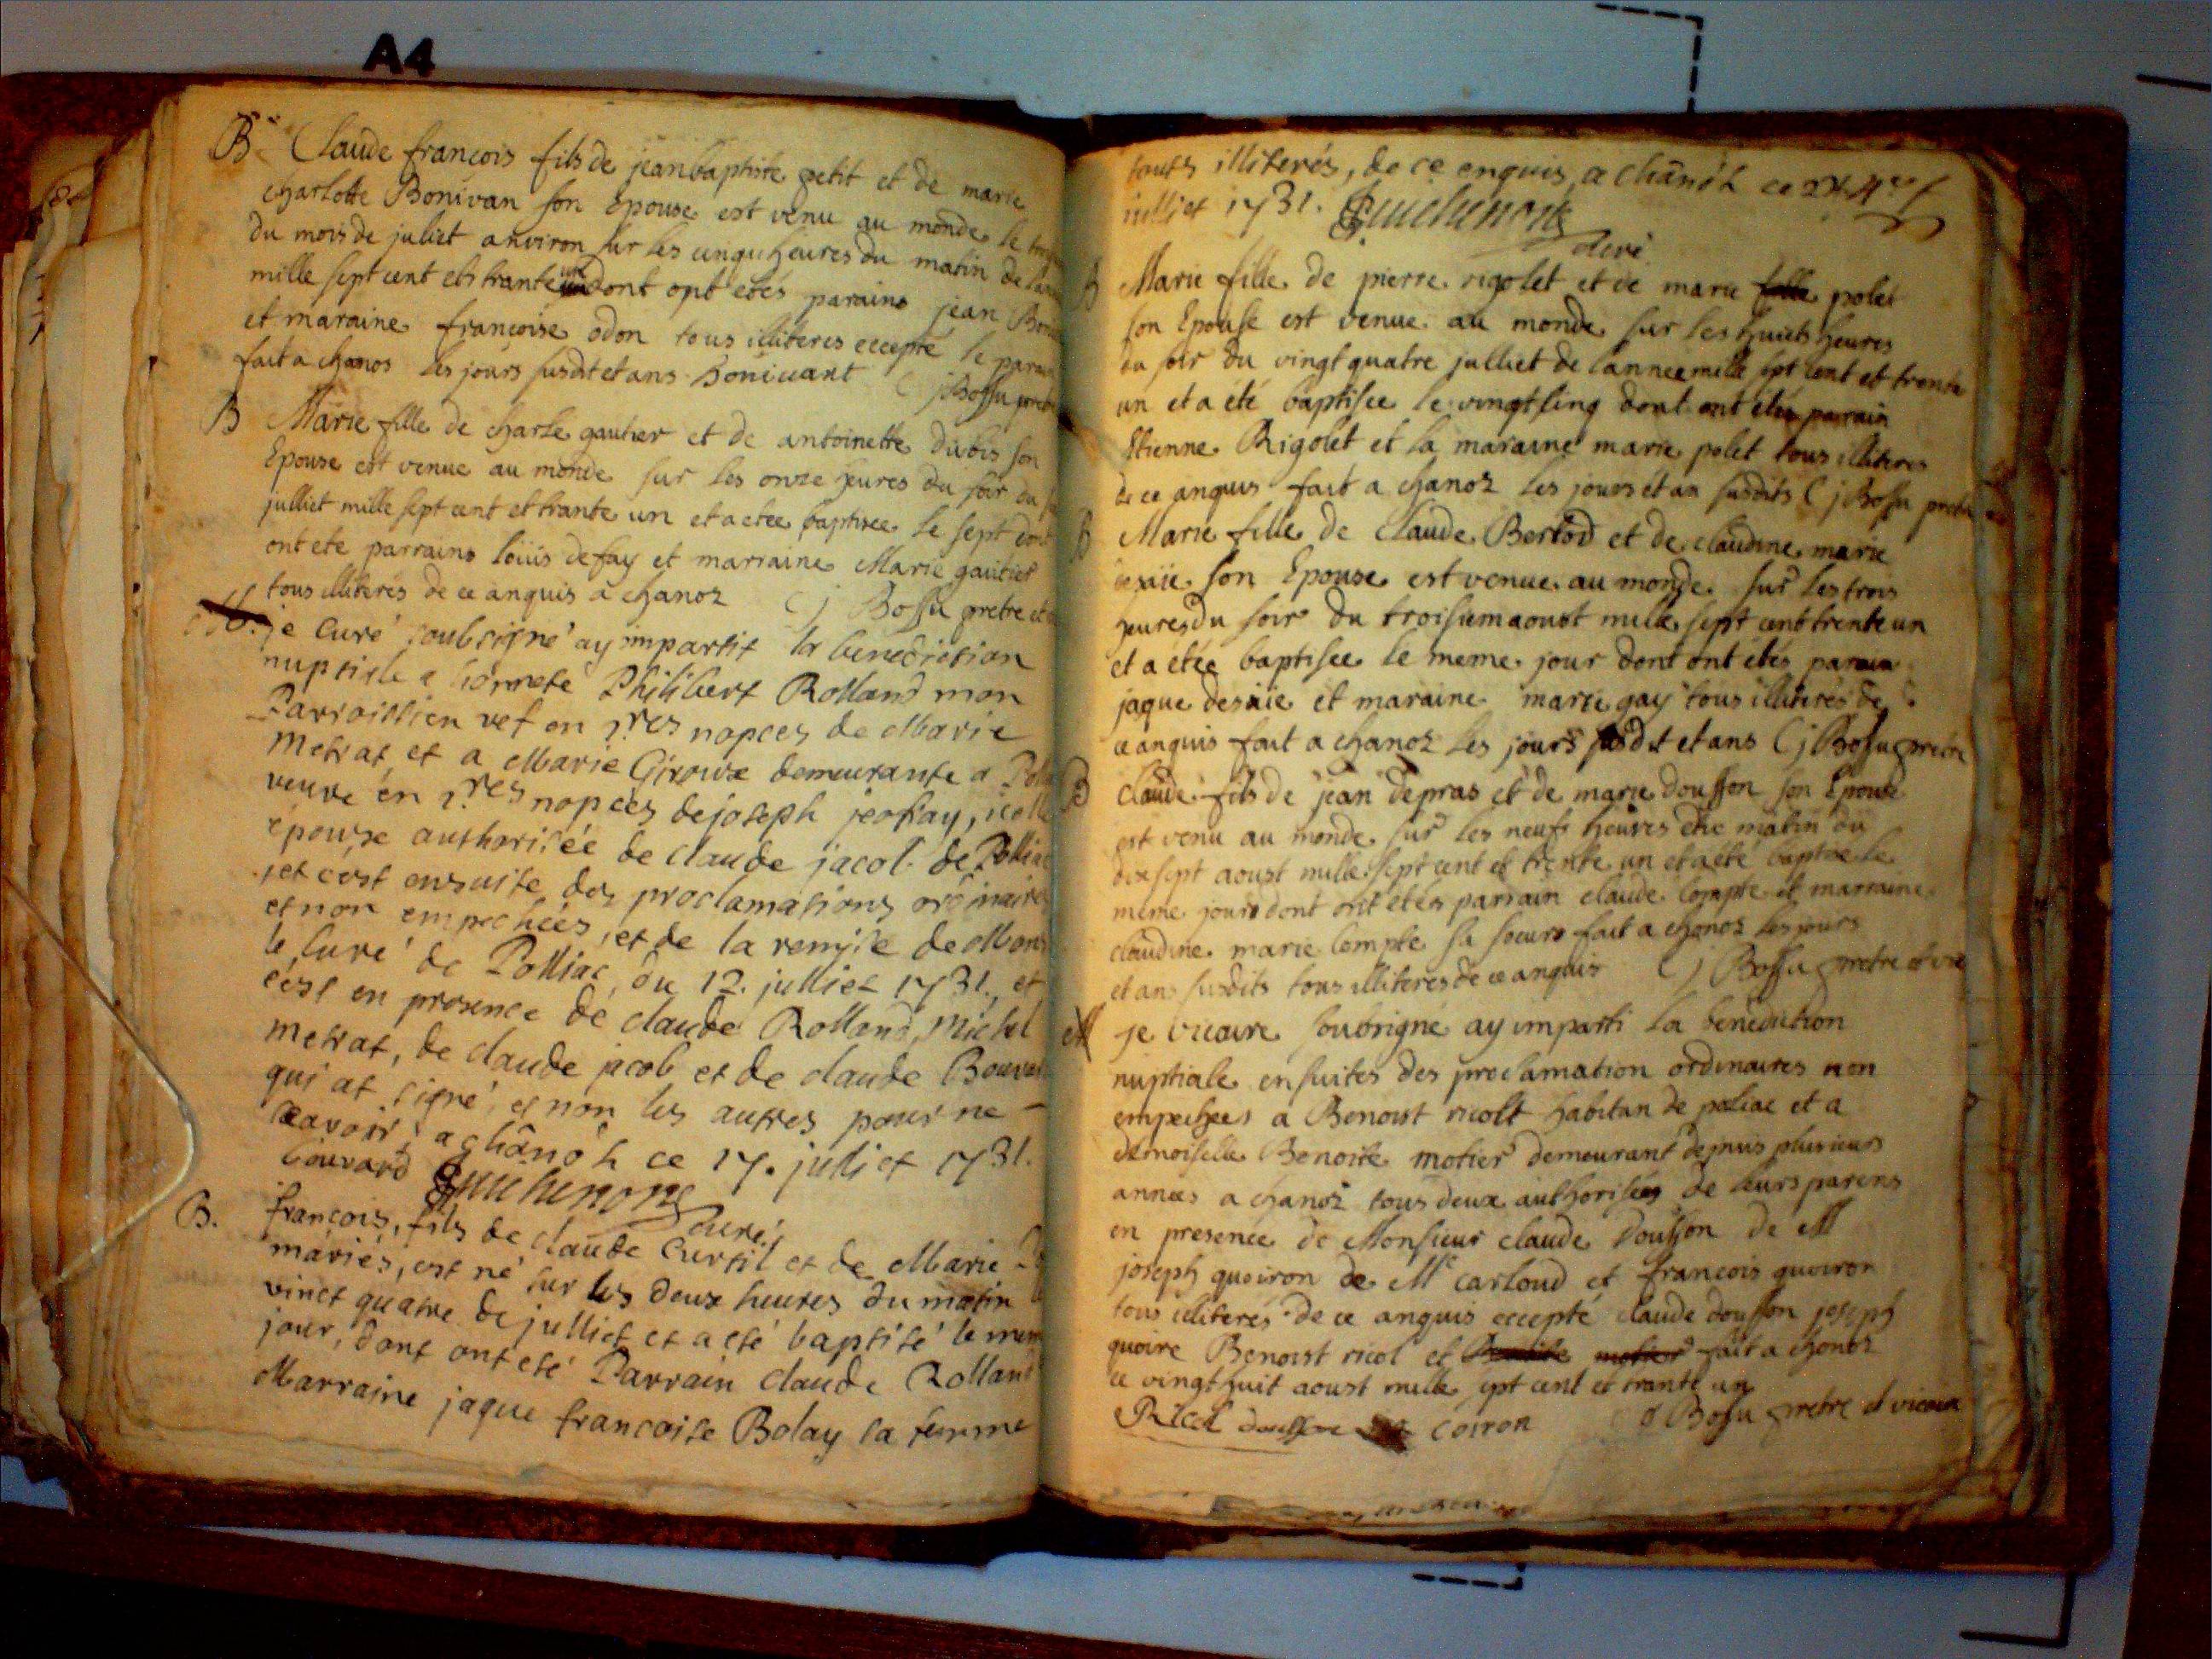 A4
B Claude francois fils de jeanbaptiste petit et de marie
charlotte Bonivan son Epouse est venu au monde le
du mois de juliet anviron sur les cinqu heures du matin de
mille sept cent et trante un dont ont etés parains jean
et maraine francoise odon tous illiteres eccepté le
fait a chanos les jours susdit et ans Bonivant C j Bossu
B Marie fille de charle gautier et de antoinette dubois son
Epouse est venue au monde sur les onze heures du soir du
julliet mille sept cent et trante un et a etee baptisee le sept dont
ont ete parrains loüis defay et marraine Marie gautier
tous illiterés de ce anquis a chanoz C j Bossu pretre et
je curé soubsigné ay impartit la benediction
nuptiale a honneté Philibert Rolland mon
Parroissien vef en 1.res nopces de Marie
Metrat, et a Marie Giroux demeurante a
veuve en 1.res nopces de joseph jeoffray,
epouse authorisée de claude jacob de
et c'est ensuite des proclamations ordinaires
et non empechées, et de la remise de
le curé de Polliac, du 12. julliet 1731., et
c'est en presence de claude Rolland, Michel
Metrat, de claude jacob et de claude
qui at signé, et non les autres pour ne
sçavoir, a chânoz ce 17. julliet 1731.
bouvard
curé
B. francois, fils de claude Curtil et de Marie
mariés, est né sur les deux heures du matin
vinct quatre de julliet et a eté baptisé le
jour, dont ont eté Parrain claude Rolland
Marraine jaque francoise Bolay sa femme
touts illiterés, de ce enquis, a chânoz ce
julliet 1731.
curé
B Marie fille de pierre rigolet et de marie polet
son Epouse est venue au monde sur les huict heures
du soir du vingt quatre julliet de lannee mille sept cent et trente
un et a été baptisee le vingt sinq dont ont étés parrain
Etienne Rigolet et la maraine marie polet tous illiteres
de ce anquis fait a chanoz les jours et an susdits C j Bossu pretre
B Marie fille de Claude Bertod et de claudine marie
son Epouse est venue au monde sur les trois
heures du soir du troisiem aoust mille sept cent trente un
et a étée baptisee le meme jour dont ont étés parain
jaque desaie et maraine marie gay tous illiterés de
ce anquis fait a chanoz les jours susdit et ans C j Bossu pretre
B Claude fils de jean depras et de marie dousson son Epouse
est venu au monde sur les neufs heures du matin du
dix sept aoust mille sept cent et trente un et a eté baptise le
meme jours dont ont étés parrain claude Compte et marraine
claudine marie Compte sa soeurs fait a chanoz les jours
et ans susdits tous illiteres de ce anquis C j Bossu pretre et
M je vicaire soubsigné ay imparti la benediction
nuptiale ensuites des proclamation ordinaires non
empechees a Benoist ricolt habitan de poliac et a
demoiselle Benoite motier demeurant depuis plusieurs
annees a chanoz tous deux authorisées de leurs parens
en presence de Monsieur claude dousson de M
joseph quoiron de Mr carloud et francois quoiron
tous illiterés de ce anquis eccepté claude dousson joseph
quoire Benoist ricol et fait a chanoz
ce vingt huit aoust mille sept cent et trante un
Ricol dousson coiron Bossu pretre et vicaire